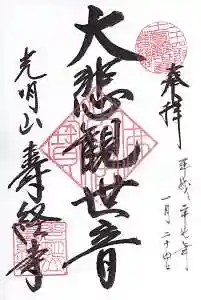 奉拝
平成二十七年
一月二十四日
大悲観世音
光明山
壽経寺